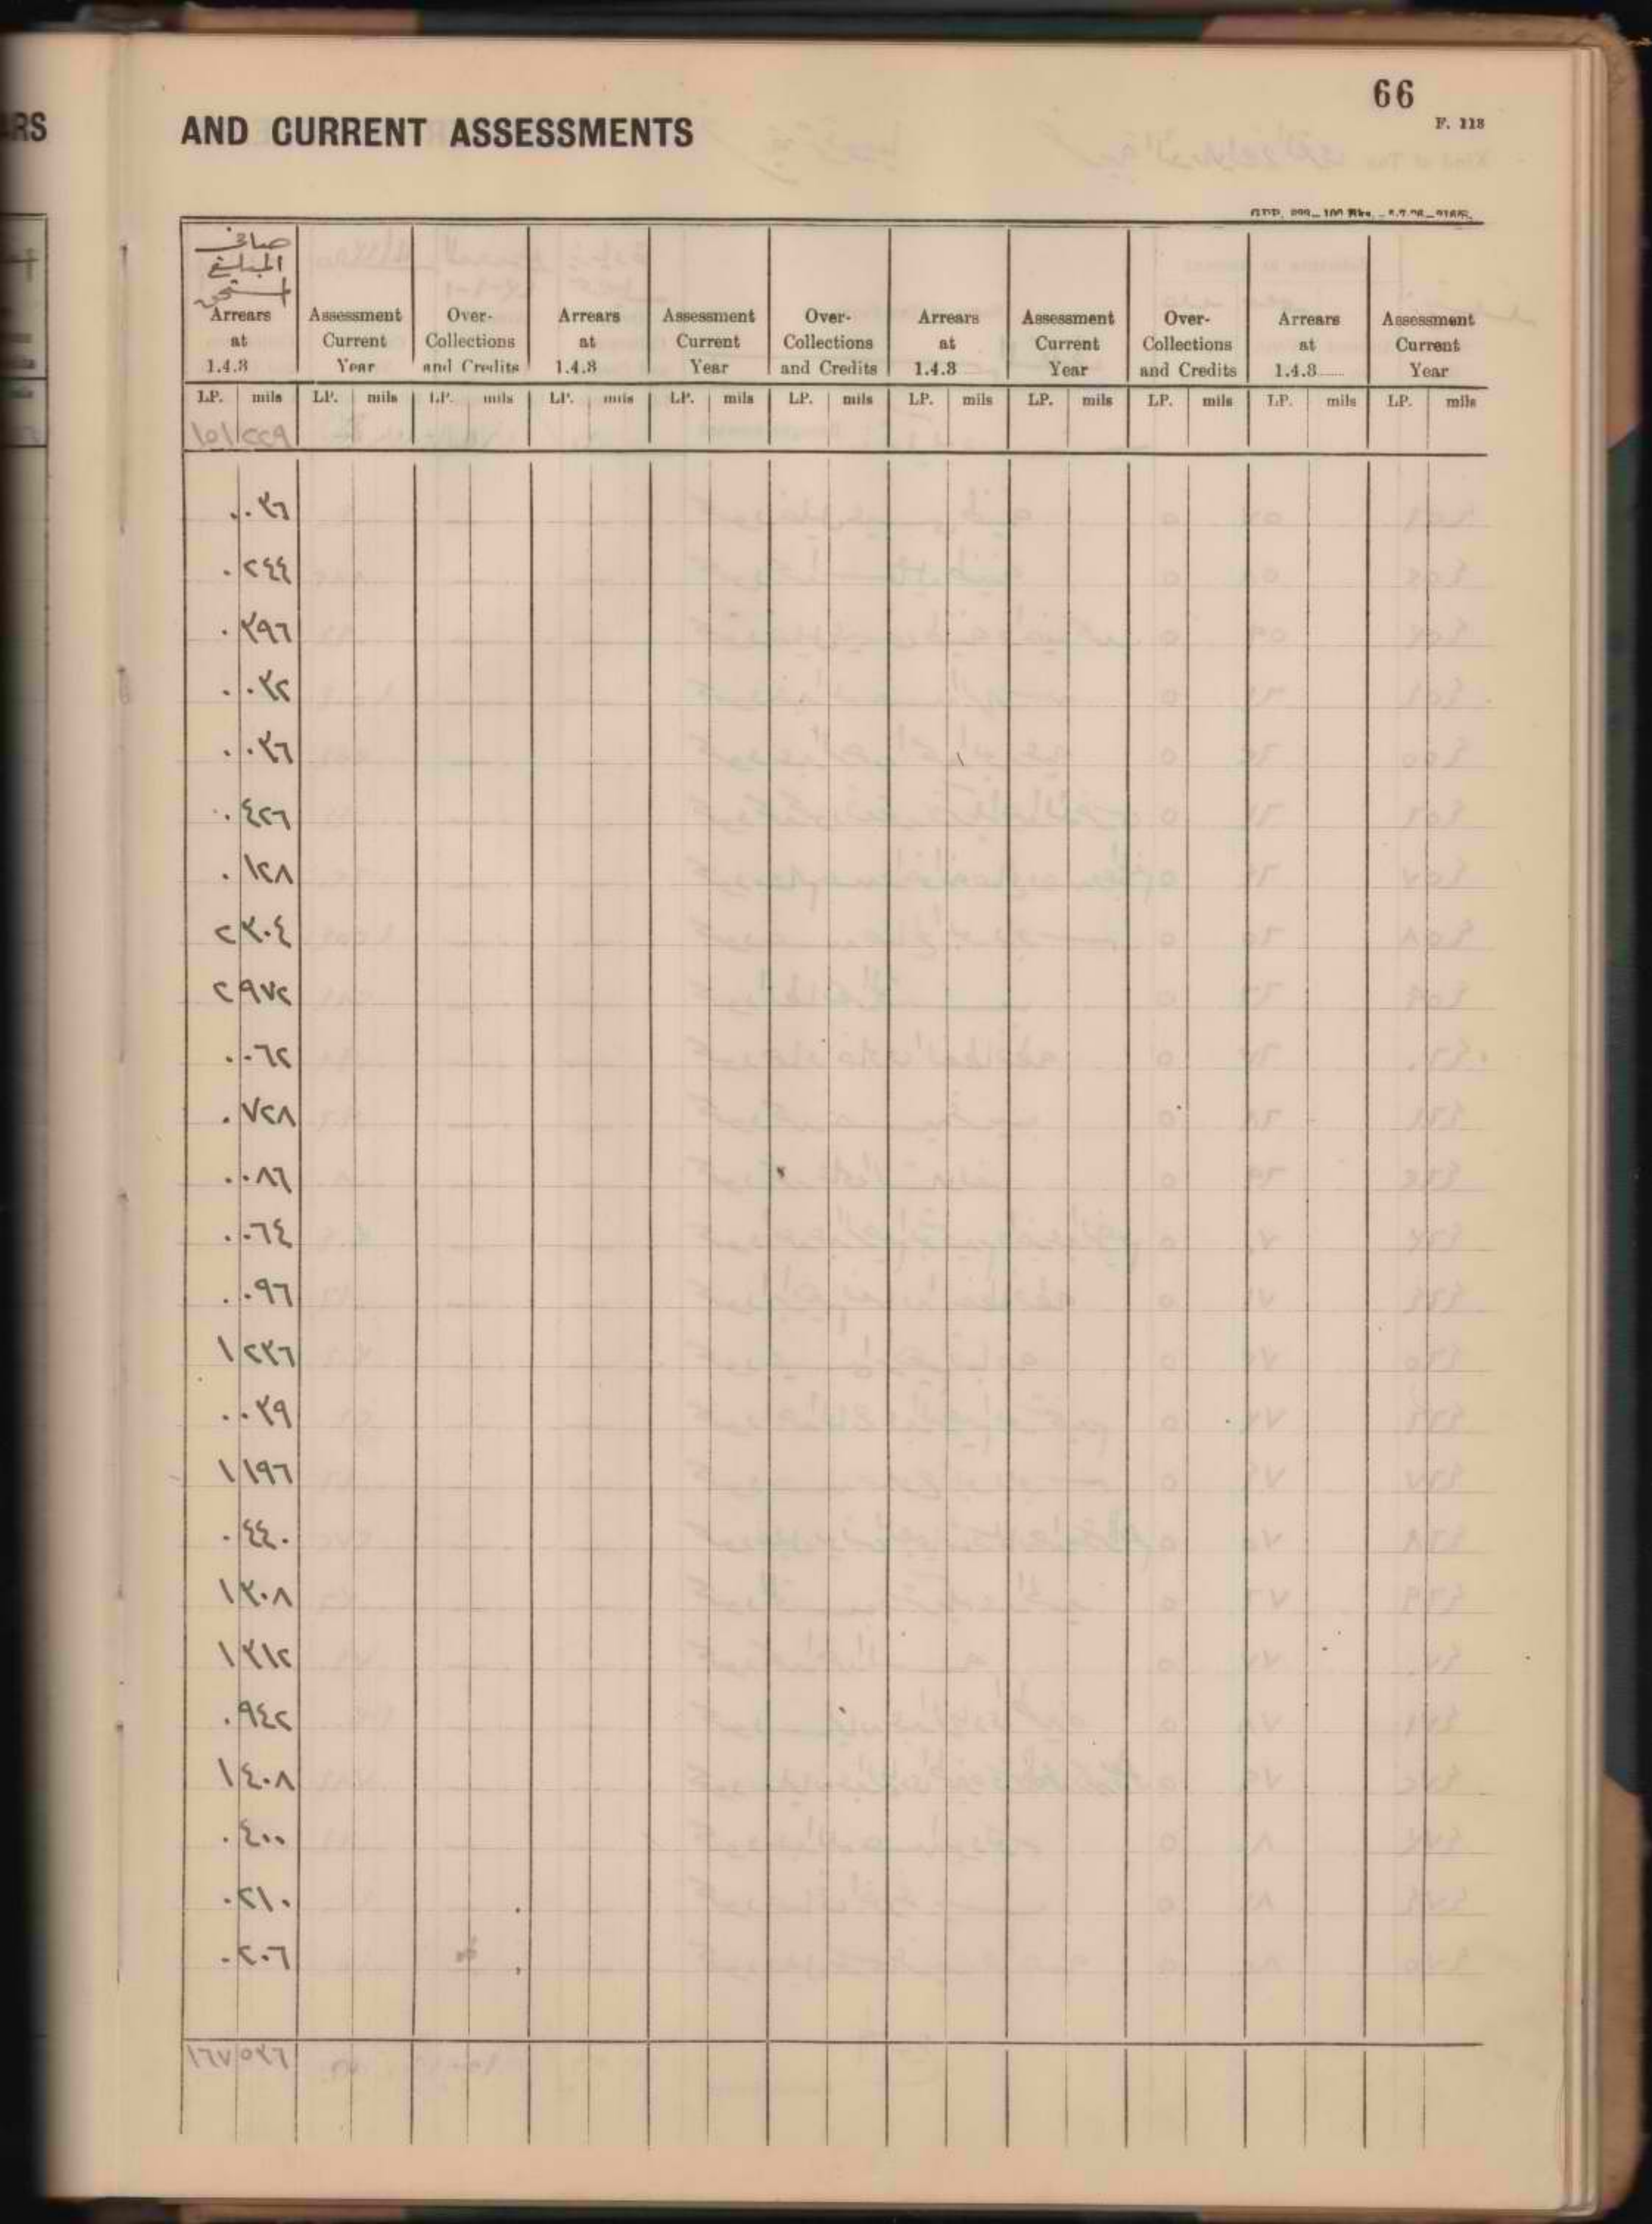 66
F. 118
AND CURRENT ASSESSMENTS
صافي
المبلغ
المستحق
Arrears at 1.4.3 Assessment Current Year Over-Collections and Credits Arrears at 1.4.3 Assessment Current Year Over-Collections and Credits Arrears at 1.4.3 Assessment Current Year Over-Collections and Credits Arrears at 1.4.3...... Assessment Current Year
LP. mils LP. mils LP. mils LP. mils LP. mils LP. mils LP. mils LP. mils LP. mils LP. mils LP. mils
١٥١ ٢٢٩
٠ ٠٣٦
٠ ٢٤٤
٠ ٣٩٦
٠ ٠٣٢
٠ ٠٣٦
٠ ٤٢٦
٠ ١٢٨
٢ ٣٠٤
٢ ٩٧٢
٠ ٠٦٢
٠ ٧٢٨
٠ ٠٨٦
٠ ٠٦٤
٠ ٠٩٦
١ ٢٣٦
٠ ٠٣٩
١ ١٩٦
٠ ٤٤٠
١ ٣٠٨
١ ٣١٢
٠ ٩٤٢
١ ٤٠٨
٠ ٤٠٠
٠ ٢١٠
٠ ٢٠٦
١٦٧ ٥٣٦